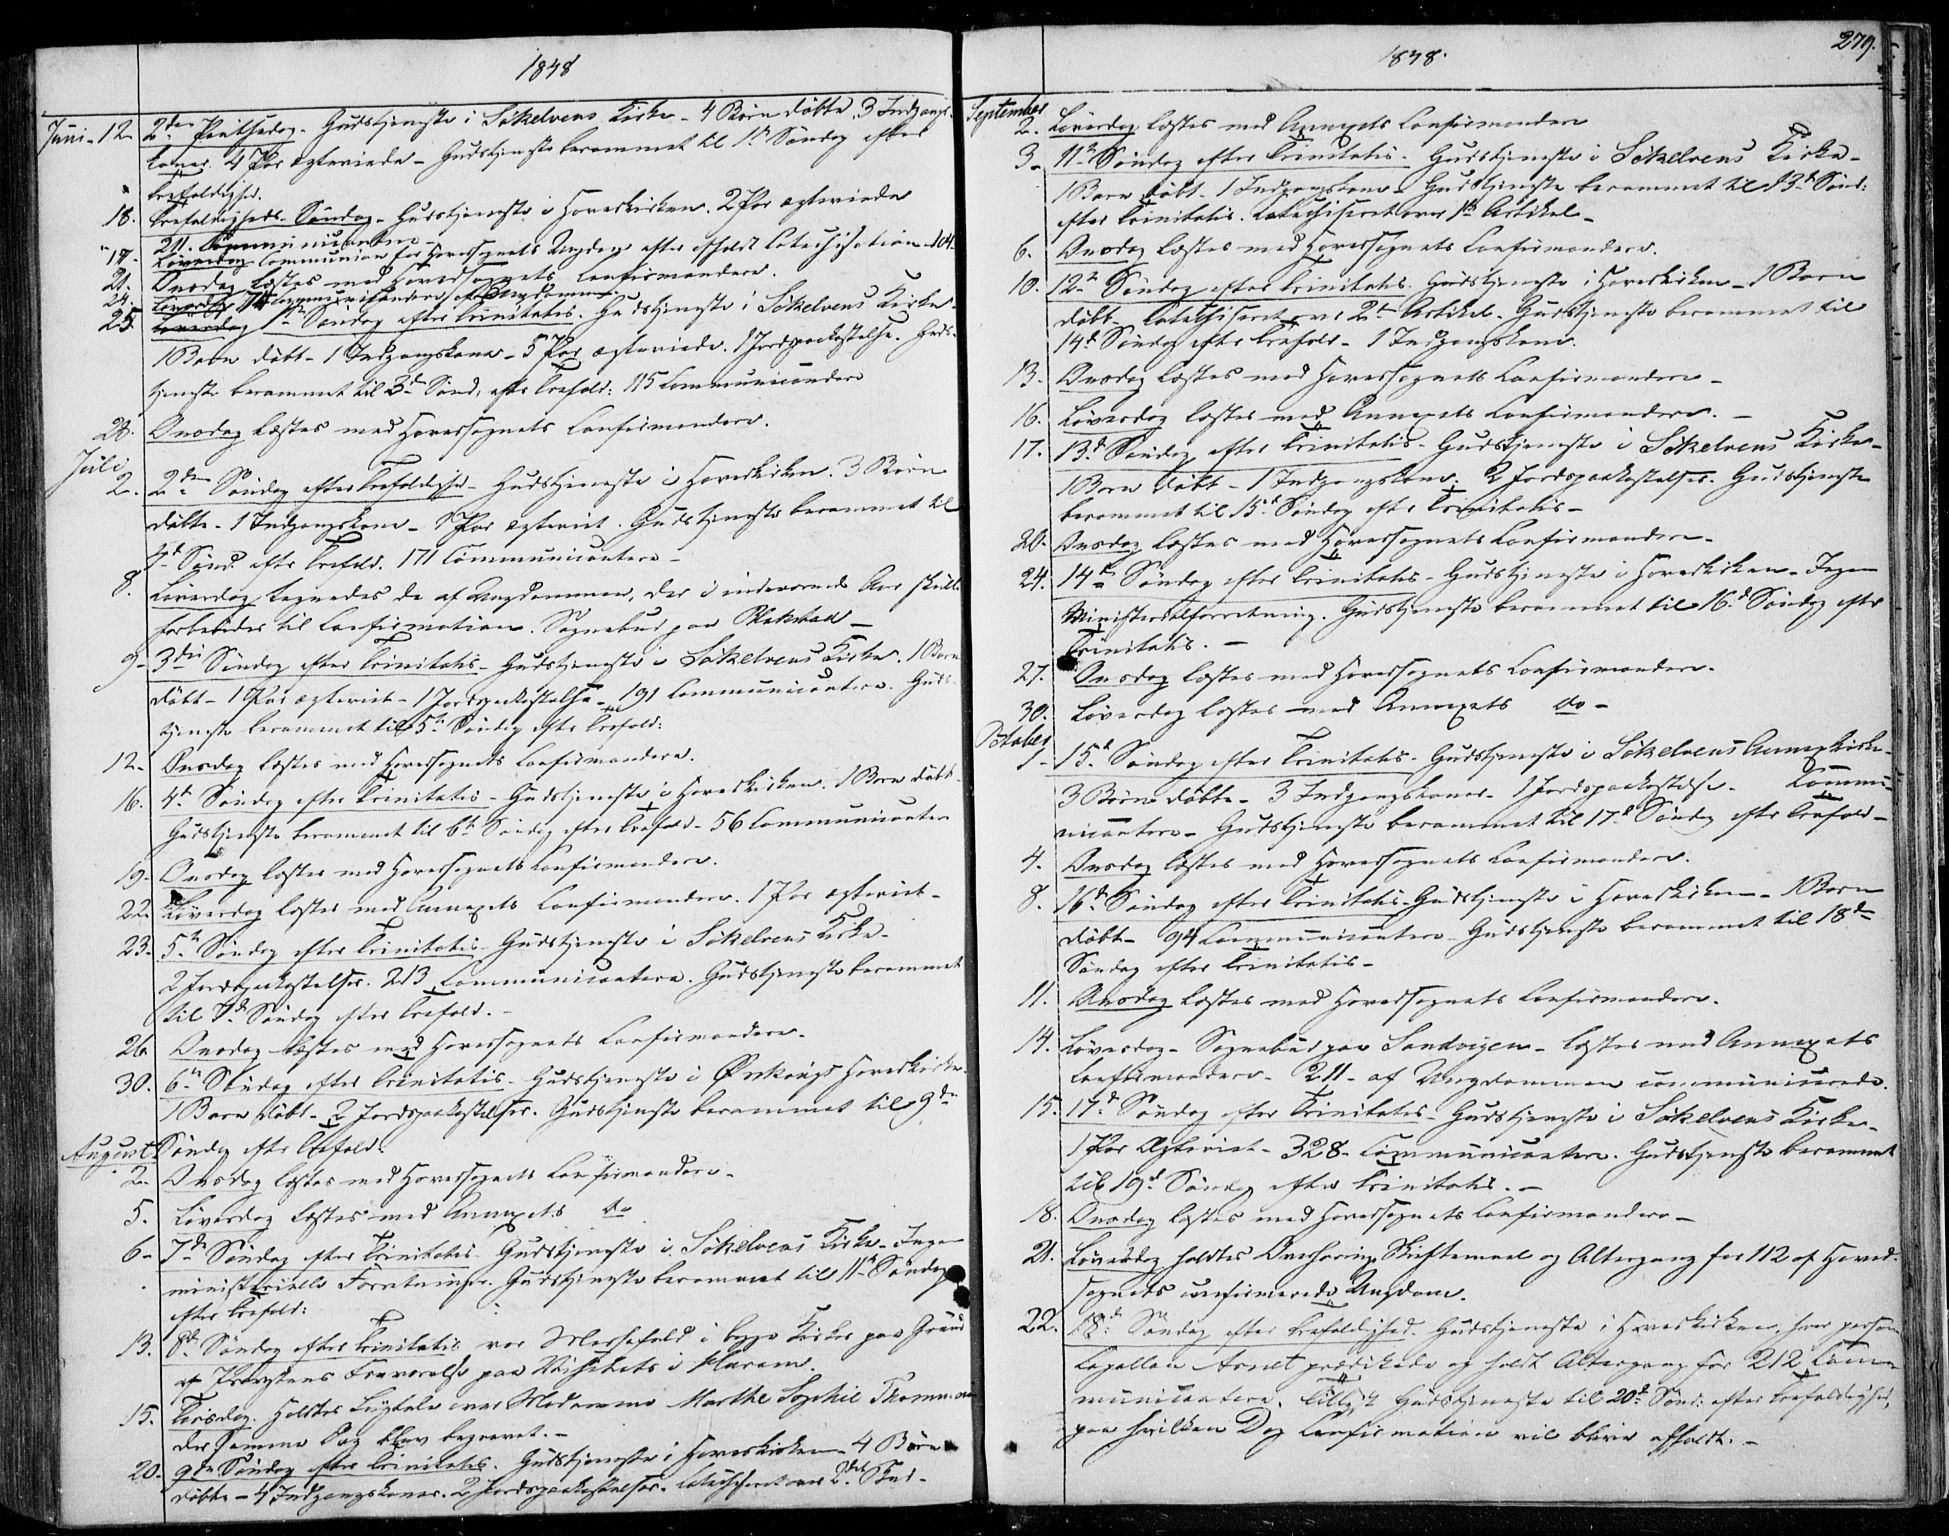 1848
Juni 12 2den Pintsedag. Gudstjeneste i Søkelvens Kirke - 4 Børn døbte, 3 Indgangs-
koner. 4 Par ægteviede - Gudstjeneste berammet til 1ste Søndag efter
Trefoldighed.
18. Trefoldigheds-Søndag. Gudstjeneste i Hovedkirken. 2 Par ægteviede
211 Communicantere -
17. Løverdag Communion for Hovedsognets Ungdom efter afholdt Catechisation - 104.
21. Onsdag læstes med Hovedsognets Confirmandere.
24. Løverdag communicerede af Ungdommen
25. 1ste Søndag efter Trinitatis. Gudstjeneste i Søkelvens Kirke -
1 Barn døbt - 1 Indgangskone - 5 Par ægteviede. 1 Jordpaakastelse. Guds-
tjeneste berammet til 3die Sønd. efter Trefold: 115 Communicandere
28. Onsdag læstes med Hovedsognets Confirmandere.
Juli
2. 2den Søndag efter Trefoldighed - Gudstjeneste i Hovedkirken. 3 Børn
døbte - 1 Indgangskone - 1 Par ægteviet. Gudstjeneste berammet til
4de Sønd. efter Trefold. 171 Communicantere -
8. Løverdag tegnedes de af Ungdommen, der i indeværende Aar skulle
forberedes til Confirmation. Sognebud paa Blakstad -
9 - 3die Søndag efter Trinitatis - Gudstjeneste i Søkelvens Kirke. 1 Barn
døbt - 1 Par ægteviet - 1 Jordpaakastelse - 191 Communicantere. Guds-
tjeneste berammet til 5te Søndag efter Trefold:
12 - Onsdag læstes med Hovedsognets Confirmandere.
16. 4de Søndag efter Trinitatis - Gudstjeneste i Hovedkirken. 1 Barn døbt -
Gudstjeneste berammet til 6te Søndag efter Trefold - 56 Communicanter
19. Onsdag læstes med Hovedsognets Confirmandere.
22. Løverdag læstes med Annexets Confirmandere. 1 Par ægteviet -
23. 5te Søndag efter Trinitatis - Gudstjeneste i Søkelvens Kirke -
2 Jordpaakastelser. 213 Communicantere. Gudstjeneste berammet
til 7de Søndag efter Trefold. -
26. Onsdag læstes med Hovedsognets Confirmandere.
30. 6te Søndag efter Trinitatis. Gudstjeneste i Ørskougs Hovedkirke.
1 Barn døbt - 2 Jordpaakastelser. Gudstjeneste berammet til 9de
August Søndag efter Trefold.
2. Onsdag læstes med Hovedsognets Confirmandere -
5. Løverdag læstes med Annexets do
6 - 7de Søndag efter Trinitatis. Gudstjeneste i Søkelvens Kirke - Ingen
ministerielle Forretninger. Gudstjeneste berammet til 11te Søndag
efter Trefold:
13. 8de Søndag efter Trinitatis var Messefald i begge Kirker paa Grund
af Præstens Fraværelse paa Visitats i Haram.
15. Tirsdag. Holdtes Liigtale over Madamme Marthe Sophie Thommesen
der samme Dag blev begravet. -
20. 9de Søndag efter Trinitatis. Gudstjeneste i Hovedkirken - 4 Børn
døbte - 4 Indgangskoner. 2 Jordpaakastelser. Catechiseret over 2det Bud -
1848.
279.
September
2. Løverdag læstes med Annexets Confirmandere
3 - 11te Søndag efter Trinitatis. Gudstjeneste i Søkelvens Kirke -
1 Barn døbt - 1 Indgangskone - Gudstjeneste berammet til 13de Sønd:
efter Trinitatis. Catechiseret over 1ste Artikel -
6. Onsdag læstes med Hovedsognets Confirmandere.
10. 12te Søndag efter Trinitatis. Gudstjeneste i Hovedkirken - 1 Barn
døbt - Catechiseret over 2den Artikel. Gudstjeneste berammet til
14de Søndag efter Trefold - 1 Indgangskone.
13. Onsdag læstes med Hovedsognets Confirmandere -
16. Løverdag læstes med Annexets Confirmandere. -
17. 13de Søndag efter Trinitatis - Gudstjeneste i Søkelvens Kirke -
1 Barn døbt - 1 Indgangskone. 2 Jordspaakastelser. Gudstjeneste
berammet til 15de Søndag efter Trinitatis -
20. Onsdag læstes med Hovedsognets Confirmandere -
24. 14de Søndag efter Trinitatis - Gudstjeneste i Hovedkirken - Ingen
Ministerialforretning. Gudstjeneste berammet til 16de Søndag efter
Trinitatis. -
27. Onsdag læstes med Hovedsognets Confirmandere.
30. Løverdag læstes med Annexets do -
October
1 - 15de Søndag efter Trinitatis - Gudstjeneste i Søkelvens Annexkirke -
3 Børn døbte - 3 Indgangskoner - 1 Jordpaakastelse. Commu-
nicantere - Gudstjeneste berammet til 17de Søndag efter Trefold -
4. Onsdag læstes med Hovedsognets Confirmandere.
8. 16de Søndag efter Trinitatis. Gudstjeneste i Hovedkirken - 1 Barn
døbt - 94 Communicantere - Gudstjeneste berammet til 18de
Søndag efter Trinitatis -
11. Onsdag læstes med Hovedsognets Confirmandere.
14. Løverdag - Sognebud paa Sandvigen - læstes med Annexets
Confirmandere - 211 - af Ungdommen communicerede.
15. 17de Søndag efter Trinitatis - Gudstjeneste i Søkelvens Kirke -
1 Par Ægteviet - 328 - Communicantere. Gudstjeneste berammet
til 19de Søndag efter Trinitatis. -
18. Onsdag læstes med Hovedsognets Confirmandere -
21. Løverdag holdtes Overhøring, Skriftemaal og Altergang for 112 af Hoved-
sognets confirmerede Ungdom.
22. 18de Søndag efter Trefoldighed. Gudstjeneste i Hovedkirken, hvor person.
Capellan Arndt prædikede og holdt Altergang for 212 Com-
municantere. Gudstjeneste til 20de Sønd: efter Trefoldighed,
paa hvilken Dag Confirmation vil blive afholdt. -